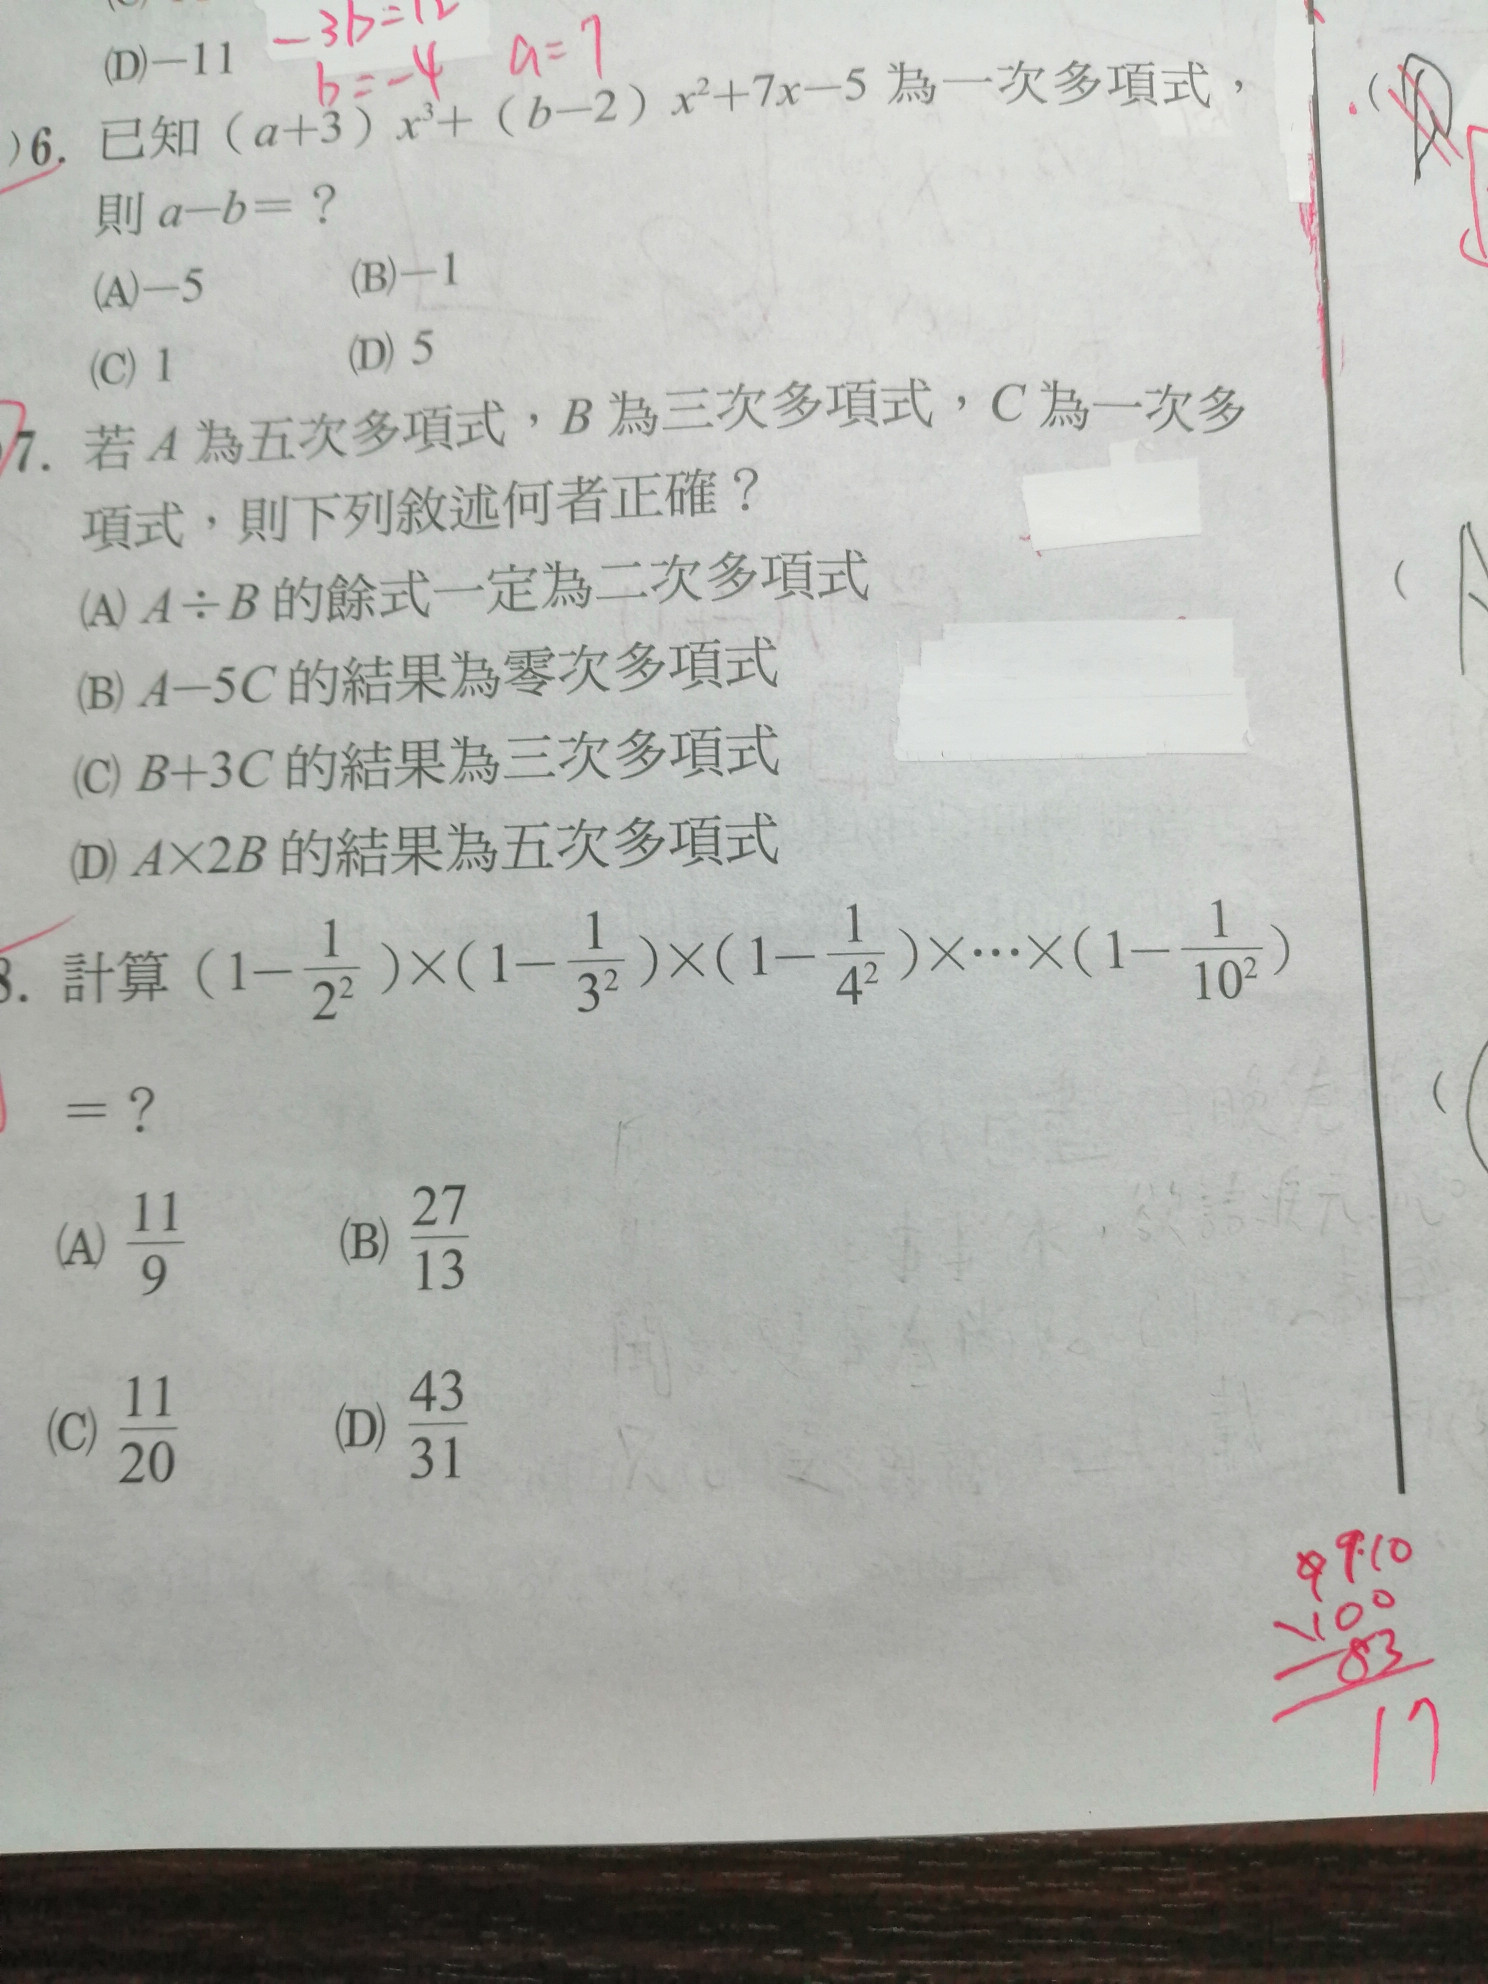 (D)−11
−3b=12
b=−4 a=7
)6. 已知（a+3）x³+（b−2）x²+7x−5 為一次多項式，
則 a−b=？
(A)−5 (B)−1
(C) 1 (D) 5
7. 若 A 為五次多項式，B 為三次多項式，C 為一次多
項式，則下列敘述何者正確？
(A) A÷B 的餘式一定為二次多項式
(B) A−5C 的結果為零次多項式
(C) B+3C 的結果為三次多項式
(D) A×2B 的結果為五次多項式
8. 計算（1−1/2²）×（1−1/3²）×（1−1/4²）×…×（1−1/10²）
=？
(A) 11/9 (B) 27/13
(C) 11/20 (D) 43/31
9.10
100
83
17